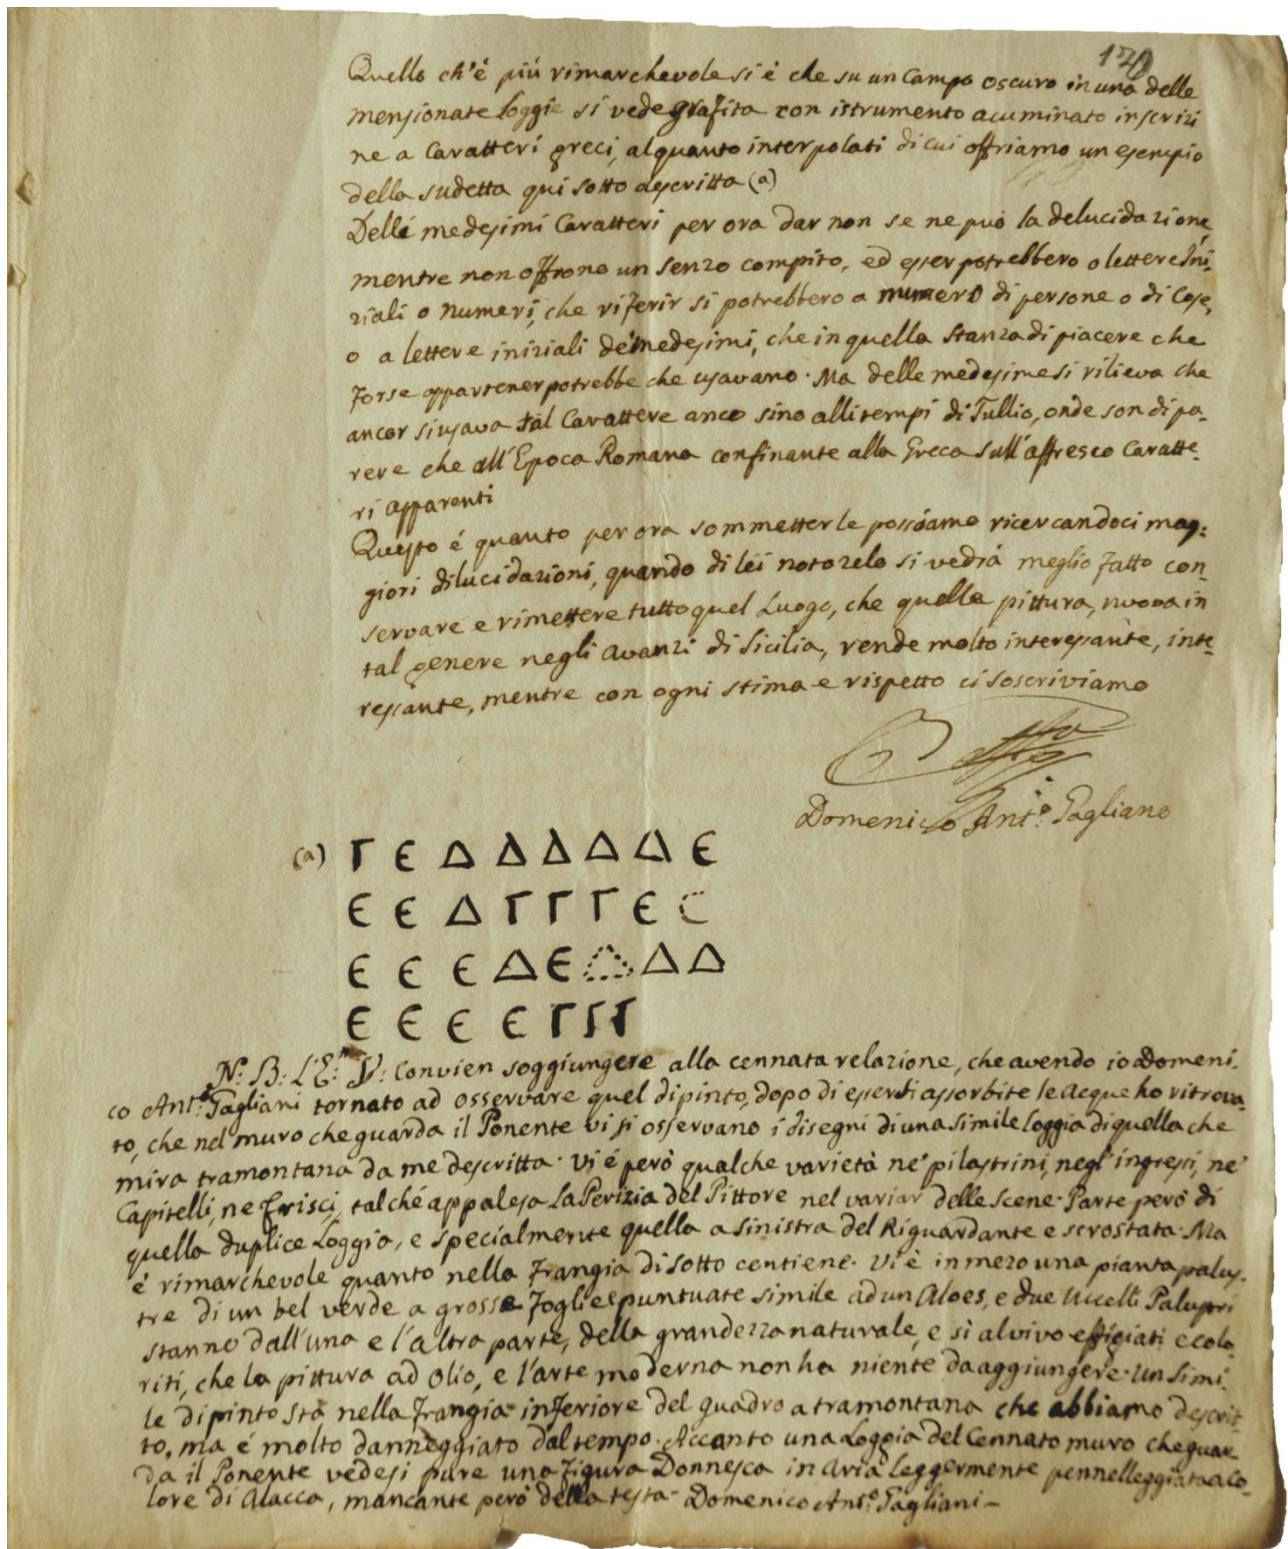 170
Quello ch'é piú rimarchevole si é che su un Campo oscuro in una delle
mensionate Loggie si vede grafita con istrumento acuminato inscrizi
ne a Caratteri greci, alquanto interpolati di cui offriamo un esempio
della sudetta qui sotto descritta (a)
Delli medesimi Caratteri per ora dar non se ne può la delucidazione,
mentre non offrono un senzo compito, ed esser potrebbero o lettere Ini:
ziali o numeri, che riferir si potrebbero a numero di persone o di Cose,
o a lettere iniziali de' medesimi, che in quella stanza di piacere che
forse appartener potrebbe che usavano. Ma delle medesime si rilieva che
ancor si usava tal Carattere anco sino alli tempi di Tullio, onde son di pa-
rere che all'Epoca Romana confinante alla Greca sull'affresco Caratte-
ri apparenti
Questo é quanto per ora sommetterle possiamo ricercandoci mag:
giori dilucidazioni, quando di lei noto zelo si vedrá meglio fatto con-
servare e rimettere tutto quel Luogo, che quella pittura, nuova in
tal genere negli avanzi di Sicilia, rende molto interessante, inte-
ressante, mentre con ogni stima e rispetto ci soscriviamo
Domenico Ant.º Gagliano
(a) Γ Є Δ Δ Δ Δ Δ Є
Є Є Δ Γ Γ Γ Є C
Є Є Є Δ Є Δ Δ Δ
Є Є Є Є Γ Γ Γ
N: B: L'E: V: Convien soggiungere alla cennata relazione, che avendo io Domeni.
co Ant.º Gagliani tornato ad osservare quel dipinto, dopo di essersi assorbite le acque ho ritrova-
to, che nel muro che guarda il Ponente vi si osservano i disegni di una simile Loggia di quella che
mira tramontana da me descritta. Vi é però qualche varietà ne' pilastrini, negl'ingressi, ne'
Capitelli, ne frisci, talché appalesa la Perizia del Pittore nel variar delle Scene. Parte però di
quella duplice Loggia, e specialmente quella a sinistra del Riguardante e scrostata. Ma
é rimarchevole quanto nella frangia di sotto contiene. Vi è in mezo una pianta palus.
tre di un bel verde a grosse foglie e puntuate simile ad un Aloes, e due Uccelli Palustri
stanno dall'una e l'altra parte, della grandezza naturale, e sì al vivo effigiati e colo
riti, che la pittura ad olio, e l'arte moderna non ha niente da aggiungere. Un simi.
le dipinto sta nella frangia inferiore del quadro a tramontana che abbiamo descrit-
to, ma é molto danneggiato dal tempo. Accanto una Loggia del Cennato muro che guar
da il Ponente vedesi pure una figura Donnesca in aria leggermente pennelleggiata a Co-
lore di alacca, mancante però della testa - Domenico Ant.º Gagliani -